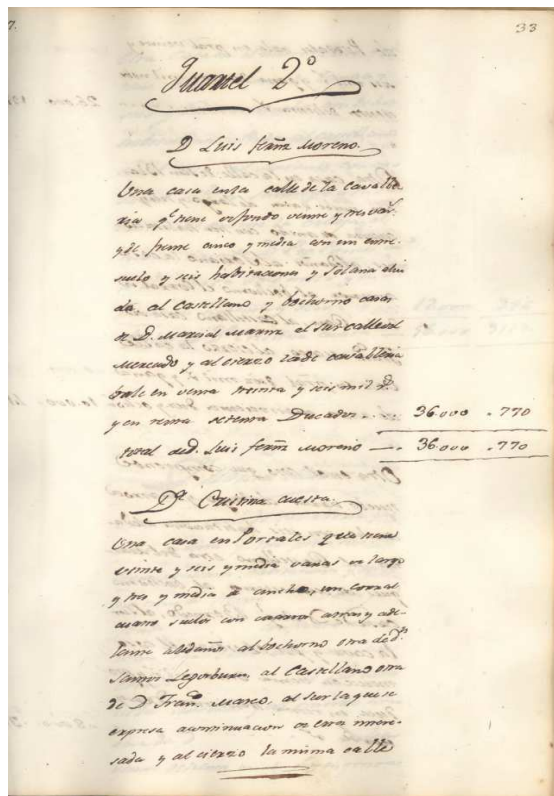 7.
33
Quartel 2º
D Luis ferñz Moreno.
Una casa en la calle de la Cavalle
ria q.e tiene de fondo veinte y tres var.s
y de frente cinco y media con un entre-
suelo y seis habitaciones y solana alin
da, al Castellano y bochorno casas
de D. Marcial Martnz el sur calle del
Mercado y al cierzo la de Cavalleria
bale en venta treinta y seis mil D.
y en renta setenta Ducados 36.000 . 770
total de D. Luis ferñz Moreno 36.000 . 770
D.ª Cristina Cuesta.
Una casa en Portales que tiene
veinte y seis y media varas de largo
y tres y media de ancho, un corral
cuatro suelos con cuartos atras y ade-
lante aledaños al bochorno otra de D.n
Santos al Castellano otra
de D Fran.co Marco, al sur la que se
expresa a continuacion de esta intere-
sada y al cierzo la misma calle